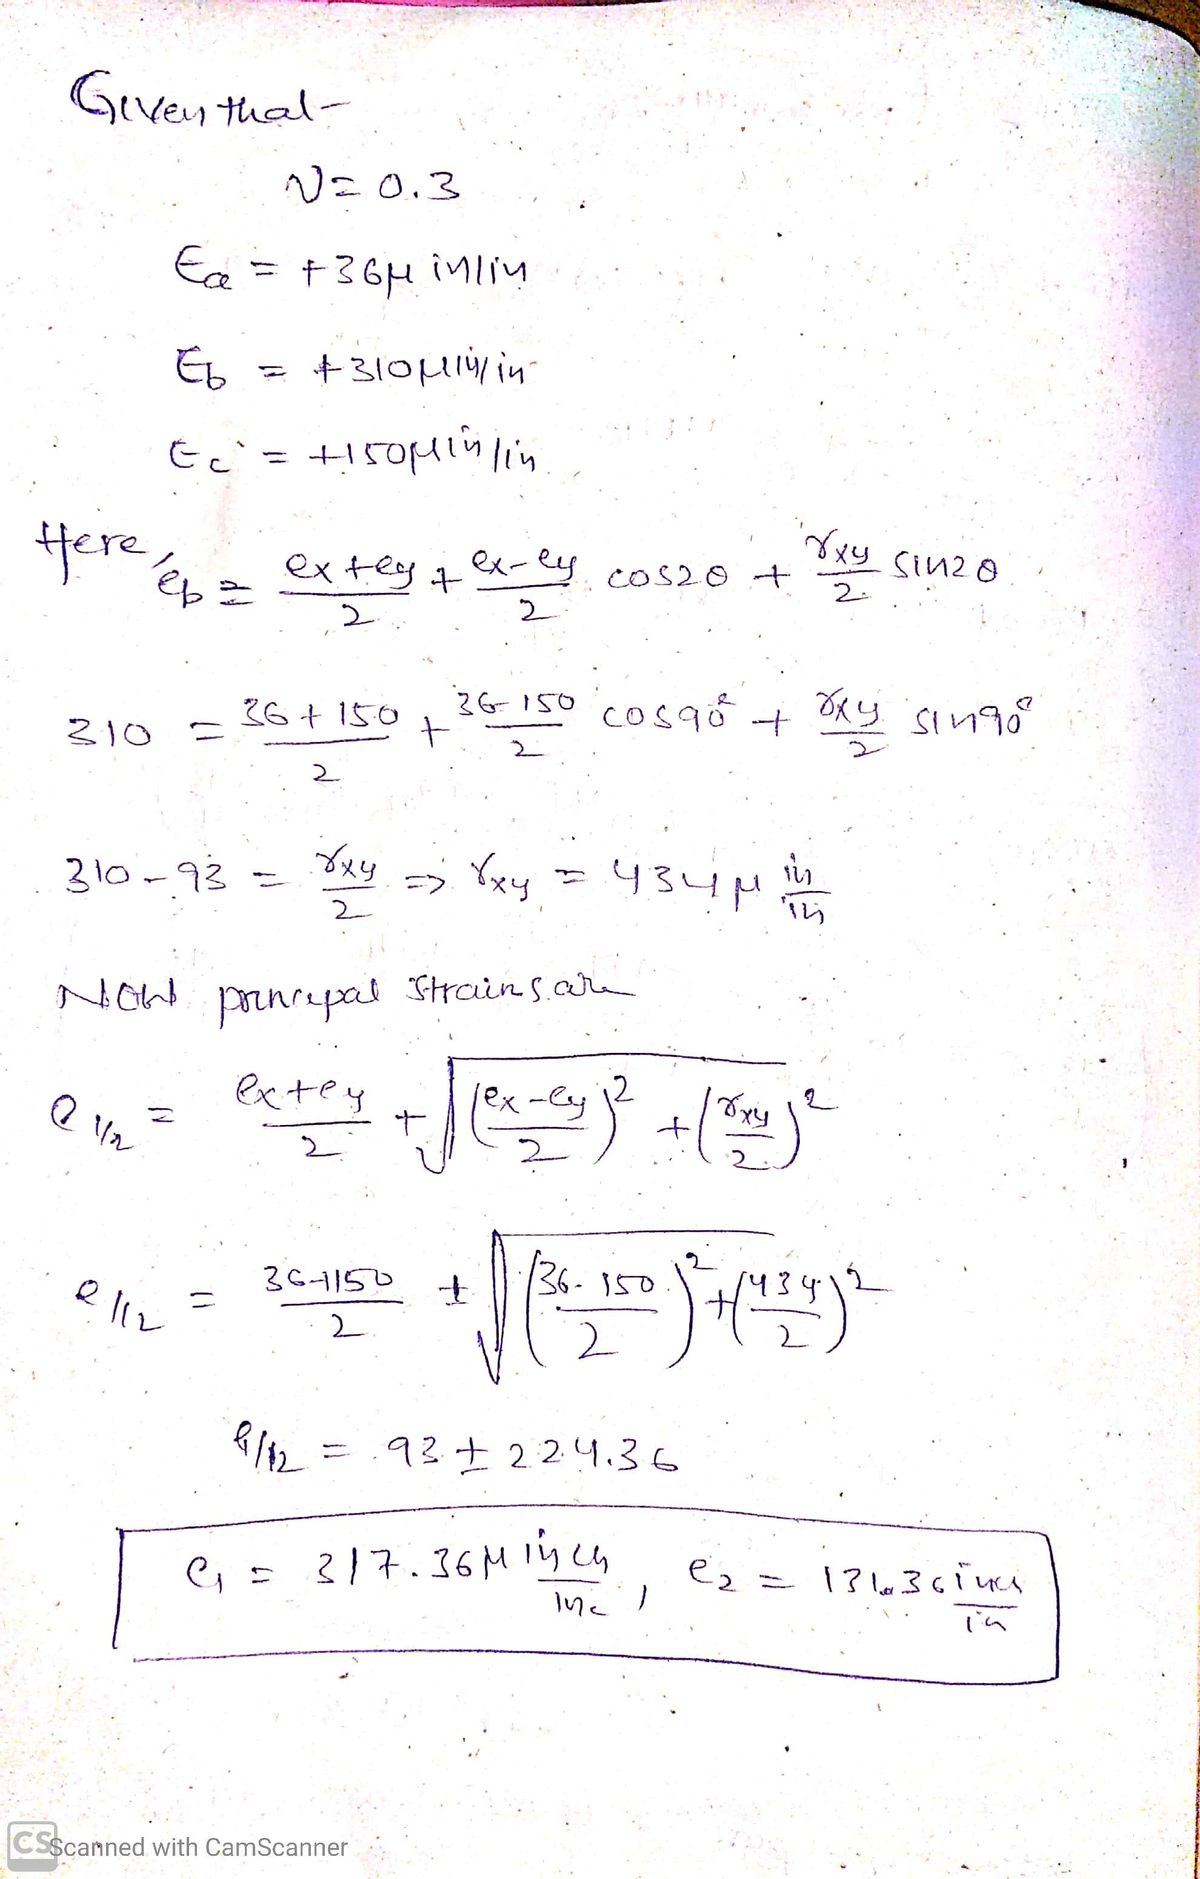 Given that-
ν = 0.3
Ea = +36μ in/in
Eb = +310μ in/in
Ec = +150μ in/in
Here, eb = (ex+ey)/2 + (ex-ey)/2 cos2θ + γxy/2 sin2θ
310 = (36+150)/2 + (36-150)/2 cos90° + γxy/2 sin90°
310-93 = γxy/2 => γxy = 434μ in/in
Now principal strains are
e1/2 = (ex+ey)/2 + √((ex-ey)/2)² + (γxy/2)²
e1/2 = (36+150)/2 ± √((36-150)/2)² + (434/2)²
e1/2 = 93 ± 224.36
e1 = 317.36μ inch/inc, e2 = 131.36 inch/in
CS Scanned with CamScanner